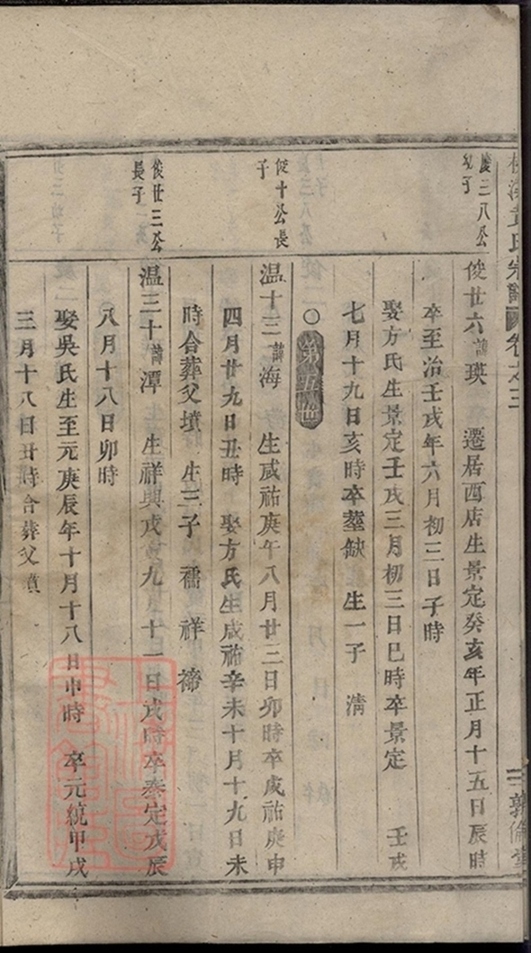 黃氏宗譜 卷之三
慶三八公
幼子
俊廿六諱瑛 遷居西店生景定癸亥年正月十五日辰時
卒至治壬戌年六月初三日子時
娶方氏生景定壬戌三月初三日巳時卒景定 壬戌
七月十九日亥時卒塟缺 生一子 清
○第五世
俊十公長
子
温十三諱海 生咸祐庚午八月廿三日卯時卒咸祐庚申
四月廿九日丑時 娶方氏生咸祐辛未十月十九日未
時合葬父墳 生三子 襦 祥 禘
俊廿三公
長子
温三十諱潭 生祥興戊寅九月十一日戌時卒泰定戊辰
八月十八日卯時
娶吳氏生至元庚辰年十月十八日申時 卒元統甲戌
三月十八日丑時合葬父墳
敦倫堂